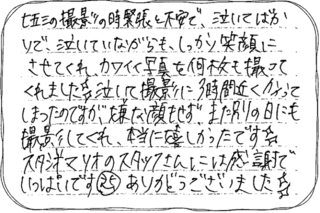 七五三の撮影の時緊張と不安で、泣いてばか
りで、泣いていながらも、しっかり笑顔に
させてくれ、カワイく写真を何枚も撮って
くれました。泣いて撮影に3時間近くかかって
しまったのですが嫌な顔もせず、また別の日にも
撮影してくれ、本当に嬉しかったです。
スタジオマリオのスタッフさんには感謝で
いっぱいです。ありがとうございました。